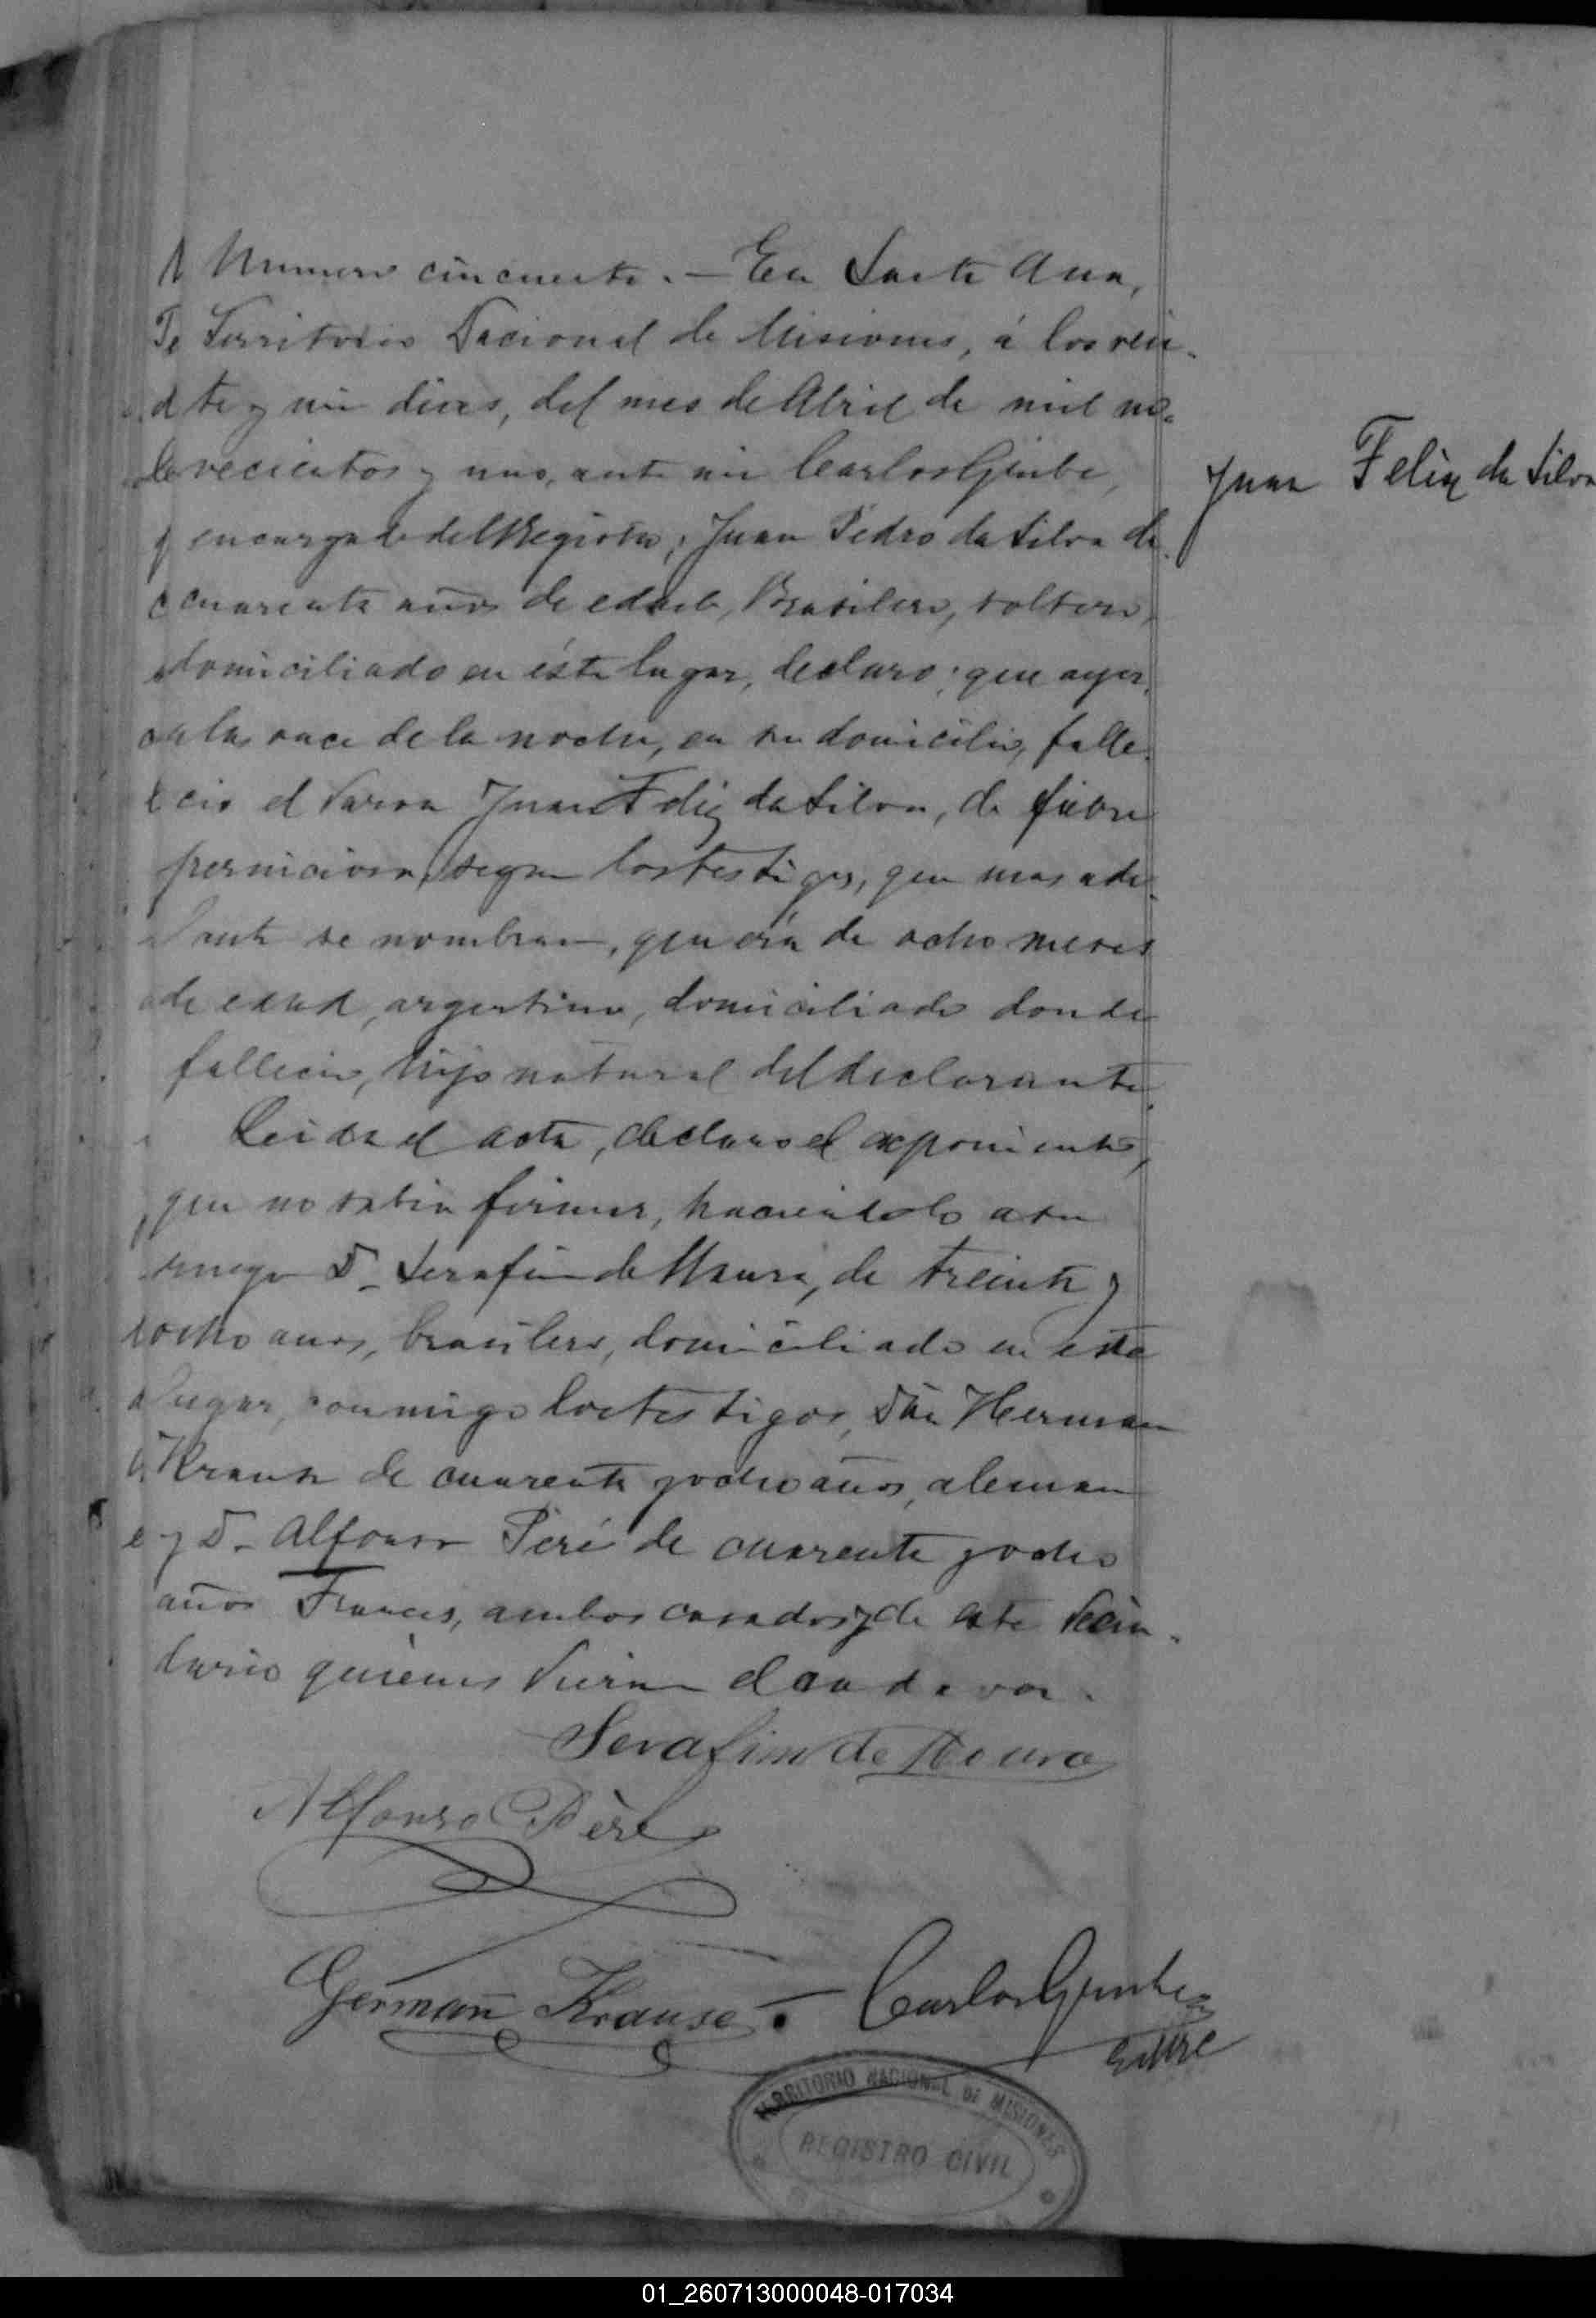 Numero cincuenta. — En Santa Ana,
Territorio Nacional de Misiones, á los vein-
te y un dias, del mes de Abril de mil no-
vecientos y uno, ante mi Carlos
encargado del Registro, Juan Pedro da Silva de
cuarenta años de edad, Brasilero, soltero,
domiciliado en éste lugar, declaro: que ayer,
a las once de la noche, en su domicilio, falle-
cio el varon Juan Feliz da Silva, de fiebre
perniciosa, segun los testigos, que mas ade-
lante se nombran, que era de ocho meses
de edad, argentino, domiciliado donde
fallecio, hijo natural del declarante.
Leida el acta, declaro el exponente,
que no sabia firmar, haciendolo a su
ruego Dn Serafin de Moura, de treinta y
ocho anos, brasilero, domiciliado en este
lugar, conmigo los testigos, Don Herman
Krause de cuarenta y ocho años, aleman
y D. Alfonso Peré de cuarenta y ocho
años Frances, ambos casados y de este vecin-
dario quienes vieron el cadaver.
Juan Feliz da Silva
Serafim de Moura
Alfonso Père
German Krause. — Carlos
TERRITORIO NACIONAL DE MISIONES
REGISTRO CIVIL
01_260713000048-017034